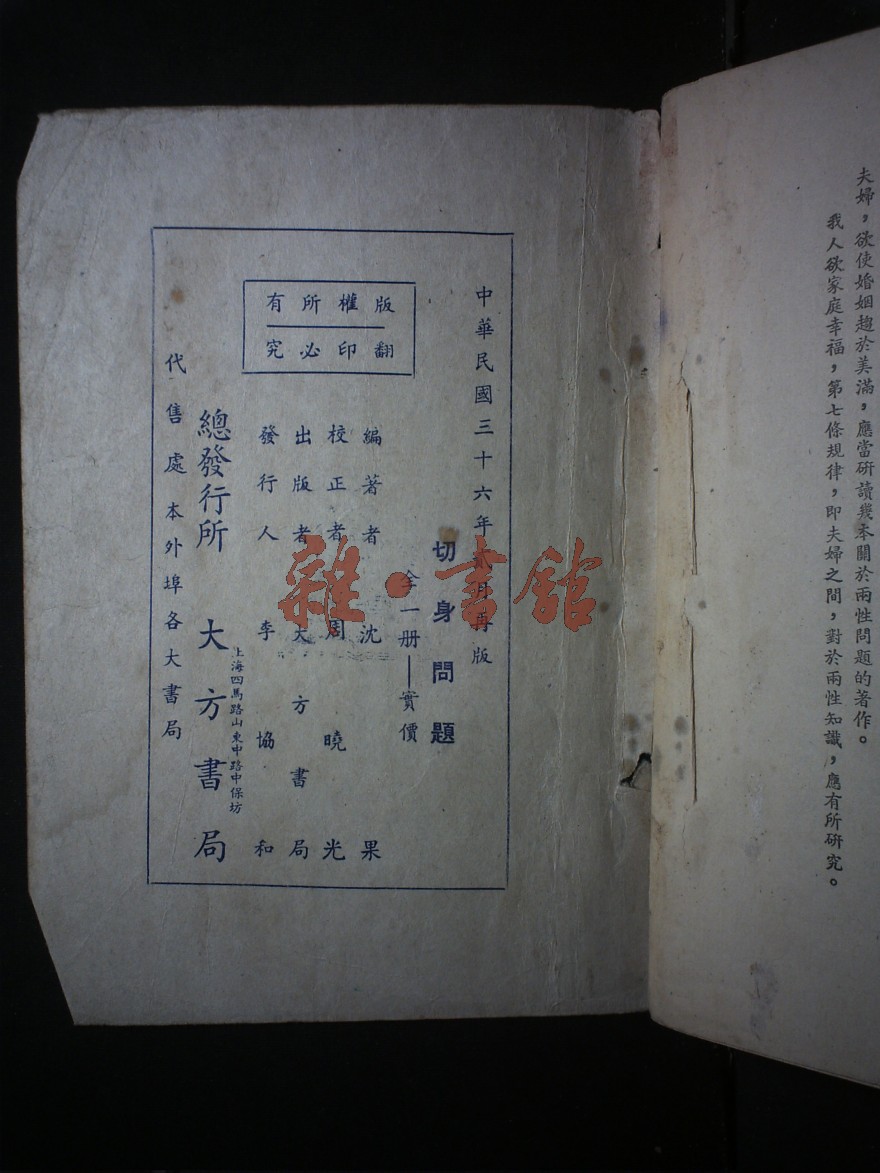 夫婦，欲使婚姻趨於美滿，應當研讀幾本關於兩性問題的著作。
我人欲家庭幸福，第七條規律，即夫婦之間，對於兩性知識，應有所研究。
中華民國三十六年貳月再版
切身問題
全一册——實價
編著者 沈果
校正者 周曉光
出版者 大方書局
發行人 李協和
版權所有
翻印必究
總發行所 大方書局
上海四馬路山東中路中保坊
代售處 本外埠各大書局
雜·書館